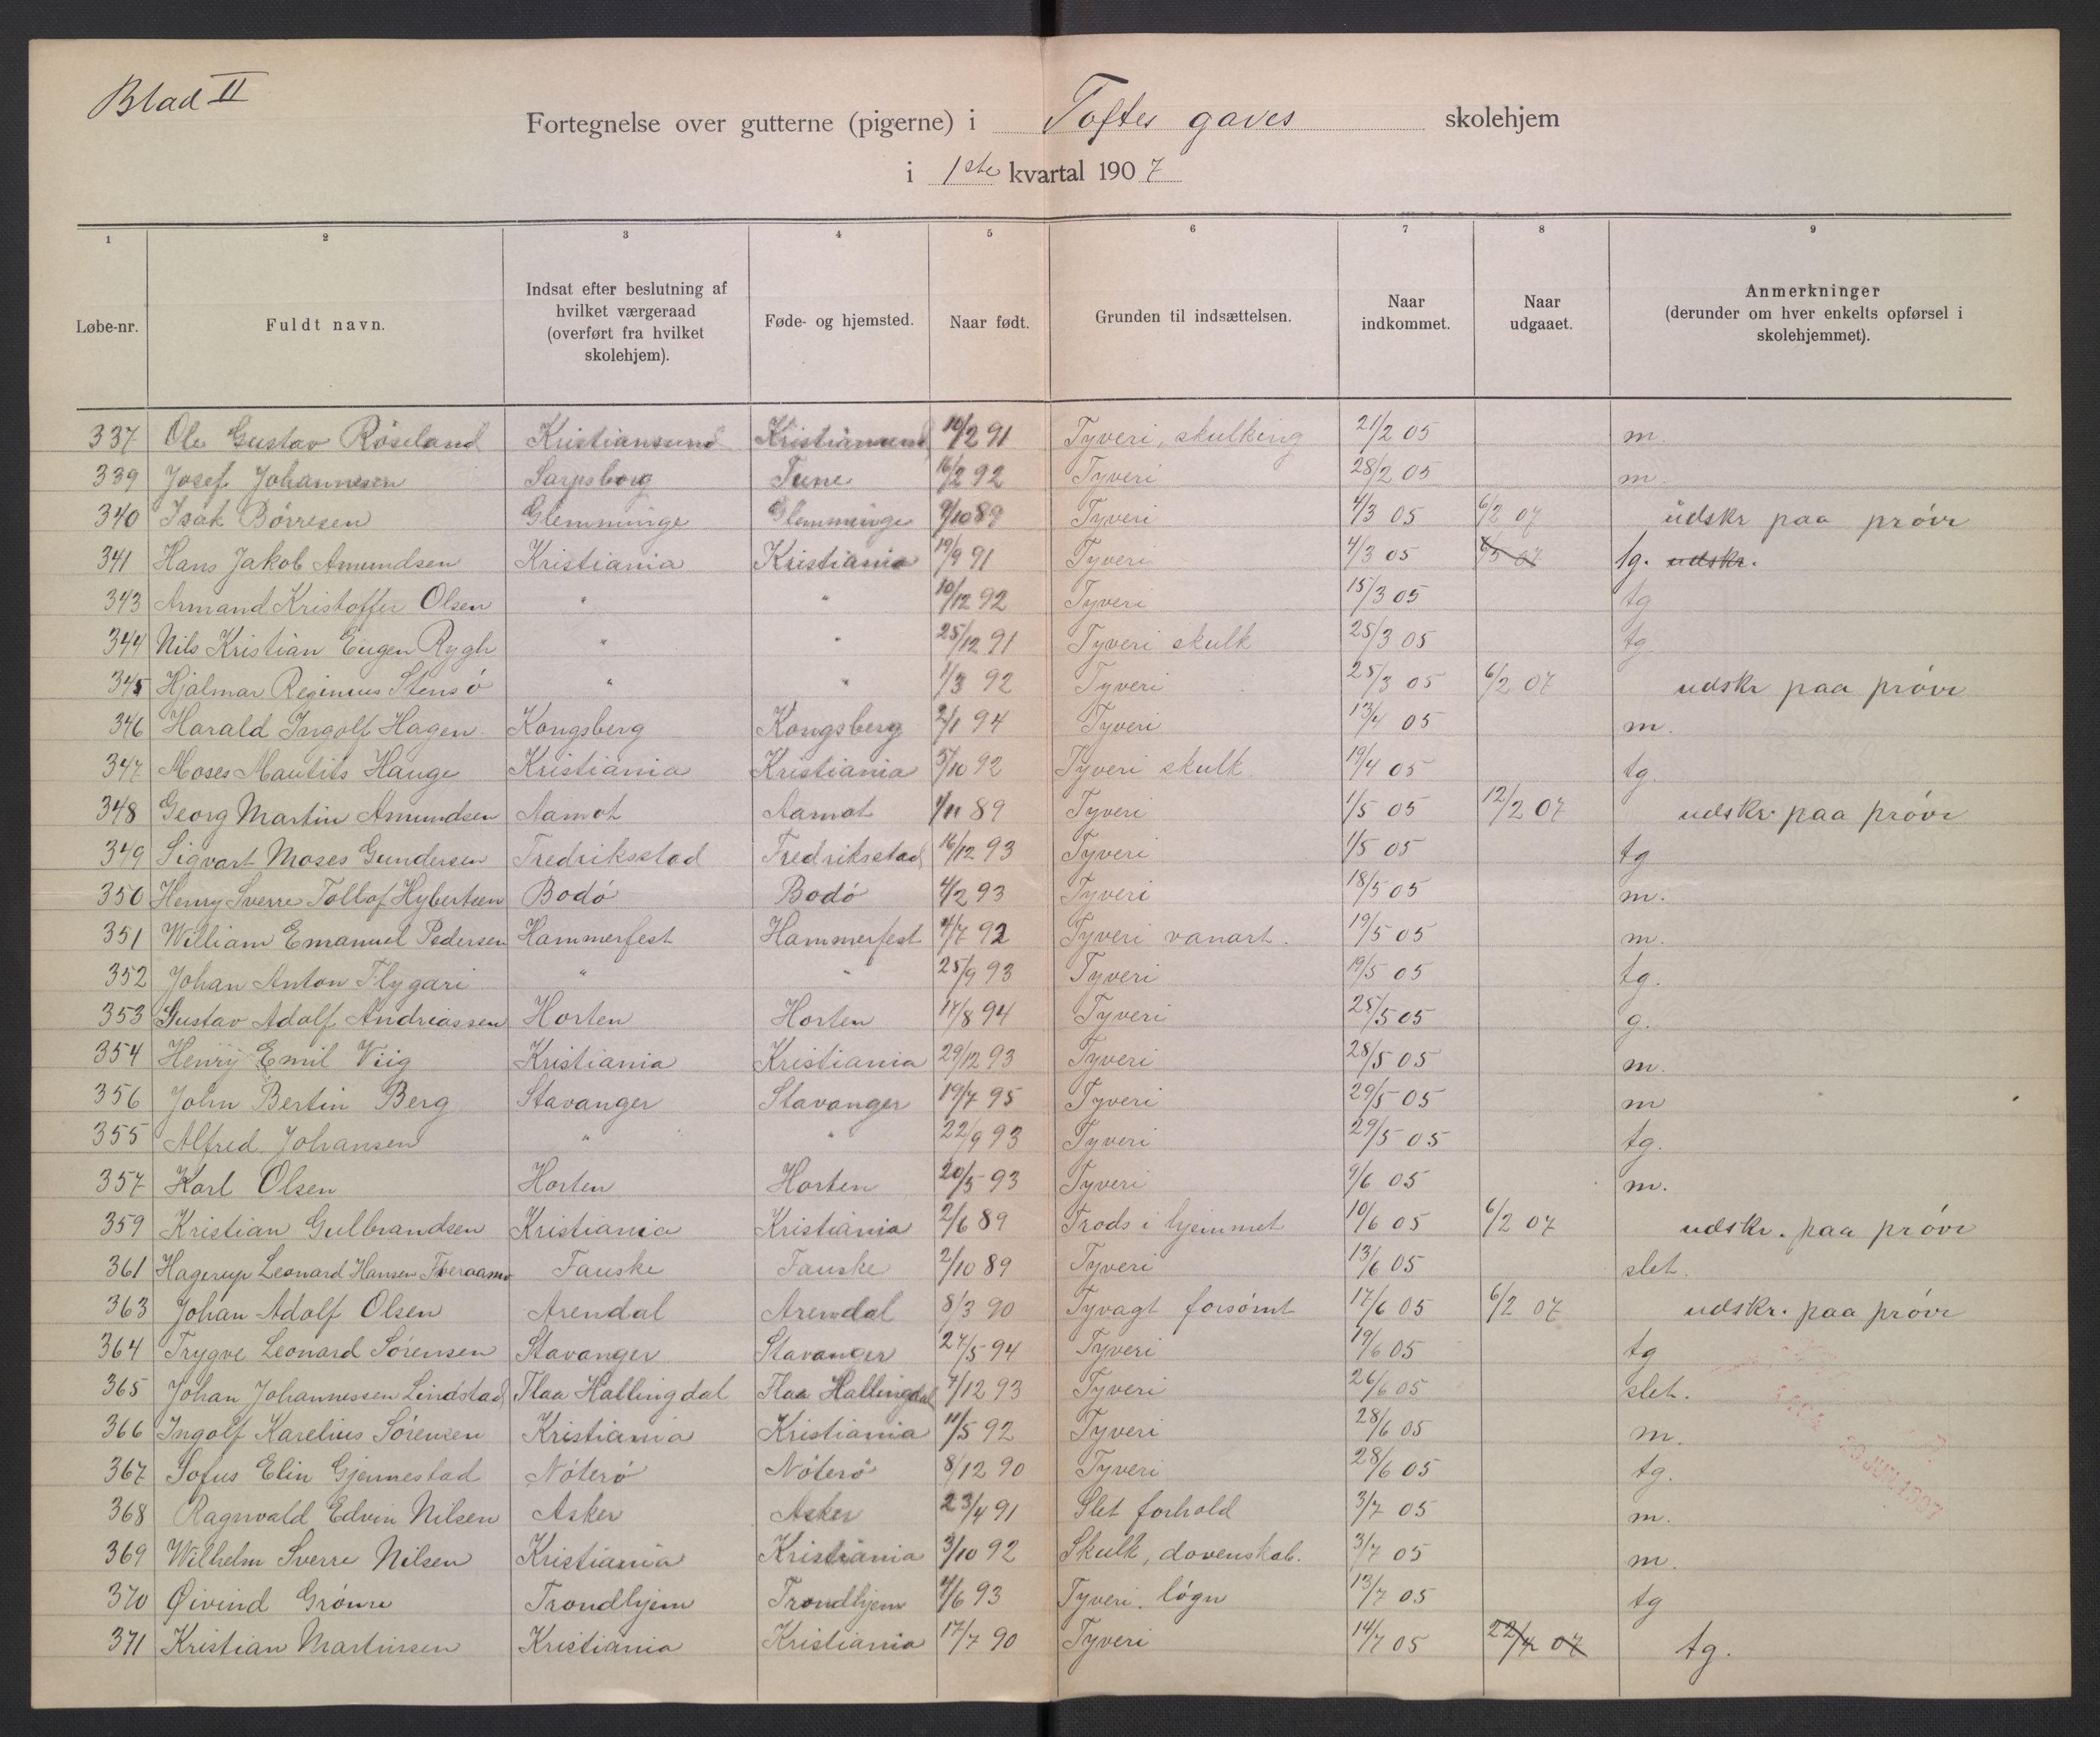 Blad II
Fortegnelse over gutterne (pigerne) i Toftes gaves skolehjem
i 1ste kvartal 1907
1 2 3 4 5 6 7 8 9
Løbe-nr. Fuldt navn. Indsat efter beslutning af hvilket værgeraad (overført fra hvilket skolehjem). Føde- og hjemsted. Naar født. Grunden til indsættelsen. Naar indkommet. Naar udgaaet. Anmerkninger (derunder om hver enkelts opførsel i skolehjemmet).
337 Ole Gustav Röseland Kristiansund Kristiansund 10/2 91 Tyveri, skulking 21/2 05 m.
339 Josef Johannesen Sarpsborg Tune 16/2 92 Tyveri 28/2 05 m.
340 Isak Börresen Glemminge Glemminge 9/10 89 Tyveri 4/3 05 6/2 07 udskr paa pröve
341 Hans Jakob Amundsen Kristiania Kristiania 19/9 91 Tyveri 4/3 05 tg. udskr.
343 Armand Kristoffer Olsen " " 10/12 92 Tyveri 15/3 05 tg
344 Nils Kristian Eugen Rygh " " 25/12 91 Tyveri skulk 25/3 05 tg
345 Hjalmar Reginius Stensö " " 1/3 92 Tyveri 25/3 05 6/2 07 udskr paa pröve
346 Harald Ingolf Hagen Kongsberg Kongsberg 2/1 94 Tyveri 13/4 05 m.
347 Moses Mautits Hauge Kristiania Kristiania 31/10 92 Tyveri skulk. 19/4 05 tg.
348 Georg Martin Amundsen Aamot Aamot 1/11 89 Tyveri 1/5 05 12/2 07 udskr. paa pröve
349 Sigvart Moses Gundersen Fredriksstad Fredriksstad 16/12 93 Tyveri 1/5 05 tg
350 Henry Sverre Tollof Hybertsen Bodö Bodö 4/2 93 Tyveri 18/5 05 m.
351 William Emanuel Pedersen Hammerfest Hammerfest 4/7 92 Tyveri vanart. 19/5 05 m.
352 Johan Anton Flygari " " 25/9 93 Tyveri 19/5 05 tg.
353 Gustav Adolf Andreassen Horten Horten 17/8 94 Tyveri 25/5 05 g.
354 Henry Emil Viig Kristiania Kristiania 29/12 93 Tyveri 28/5 05 m.
356 John Bertin Berg Stavanger Stavanger 19/7 95 Tyveri 29/5 05 m
355 Alfred Johansen " " 22/9 93 Tyveri 29/5 05 tg.
357 Karl Olsen Horten Horten 20/5 93 Tyveri 9/6 05 m.
359 Kristian Gulbrandsen Kristiania Kristiania 2/6 89 Trods i hjemmet 10/6 05 6/2 07 udskr. paa pröve
361 Hagerup Leonard Hansen Tveraamo Fauske Fauske 2/10 89 Tyveri 13/6 05 slet.
363 Johan Adolf Olsen Arendal Arendal 8/3 90 Tyvagt forsömt 17/6 05 6/2 07 udskr. paa pröve
364 Trygve Leonard Sörensen Stavanger Stavanger 27/5 94 Tyveri 19/6 05 tg
365 Johan Johannessen Lindstad Flaa Hallingdal Flaa Hallingdal 7/12 93 Tyveri 26/6 05 slet.
366 Ingolf Karelius Sörensen Kristiania Kristiania 11/5 92 Tyveri 28/6 05 m.
367 Sofus Elin Gjennestad Nöterö Nöterö 8/12 90 Tyveri 28/6 05 tg.
368 Ragnvald Edvin Nilsen Asker Asker 23/4 91 Slet forhold 3/7 05 m.
369 Wilhelm Sverre Nilsen Kristiania Kristiania 3/10 92 Skulk, dovenskab. 3/7 05 m.
370 Øivind Grönre Trondhjem Trondhjem 4/6 93 Tyveri. lögn 13/7 05 tg
371 Kristian Martinsen Kristiania Kristiania 17/7 90 Tyveri 14/7 05 22/4 07 tg.